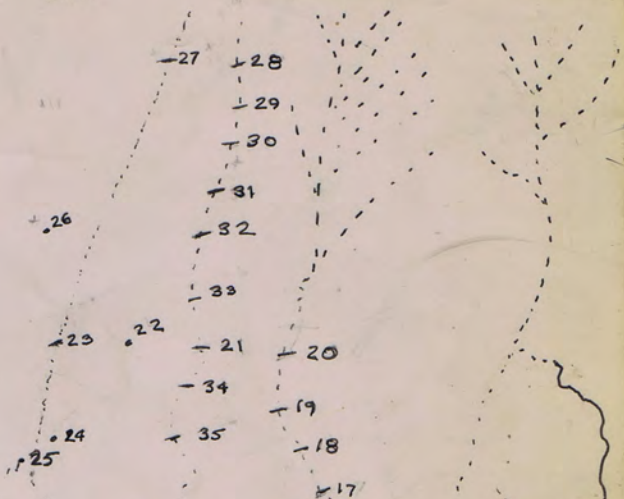 27
28
29
30
31
32
26
33
23
22
21
20
34
19
24
35
18
25
17